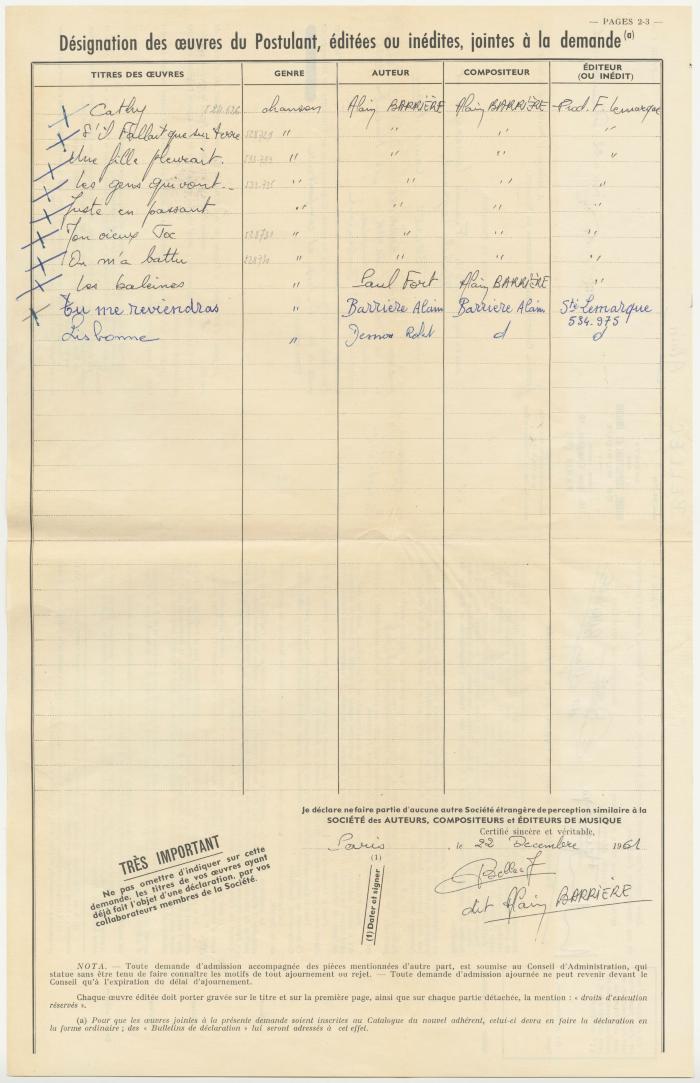 — PAGES 2-3 —
Désignation des œuvres du Postulant, éditées ou inédites, jointes à la demande (a)
TITRES DES ŒUVRES GENRE AUTEUR COMPOSITEUR ÉDITEUR (OU INÉDIT)
Cathy chanson Alain BARRIÈRE Alain BARRIÈRE Prod. F. Lemarque
S'il Fallait que sur terre " " " "
Une fille pleurait. " " " "
Les gens qui vont... " " " "
Juste en passant " " " "
Mon vieux Joe " " " "
On m'a battu " " " "
Les baleines " Paul Fort Alain BARRIÈRE "
Tu me reviendras " Barrière Alain Barrière Alain Sté Lemarque
534.975
Lisbonne " d d
Je déclare ne faire partie d'aucune autre Société étrangère de perception similaire à la
SOCIÉTÉ des AUTEURS, COMPOSITEURS et ÉDITEURS DE MUSIQUE
Certifié sincère et véritable,
Paris , le 22 Décembre 1961
(1)
dit Alain BARRIÈRE
(1) Dater et signer
TRÈS IMPORTANT
Ne pas omettre d'indiquer sur cette
demande, les titres de vos œuvres ayant
déjà fait l'objet d'une déclaration, par vos
collaborateurs membres de la Société.
NOTA. — Toute demande d'admission accompagnée des pièces mentionnées d'autre part, est soumise au Conseil d'Administration, qui
statue sans être tenu de faire connaître les motifs de tout ajournement ou rejet. — Toute demande d'admission ajournée ne peut revenir devant le
Conseil qu'à l'expiration du délai d'ajournement.
Chaque œuvre éditée doit porter gravée sur le titre et sur la première page, ainsi que sur chaque partie détachée, la mention : « droits d'exécution
réservés ».
(a) Pour que les œuvres jointes à la présente demande soient inscrites au Catalogue du nouvel adhérent, celui-ci devra en faire la déclaration en
la forme ordinaire ; des « Bulletins de déclaration » lui seront adressés à cet effet.